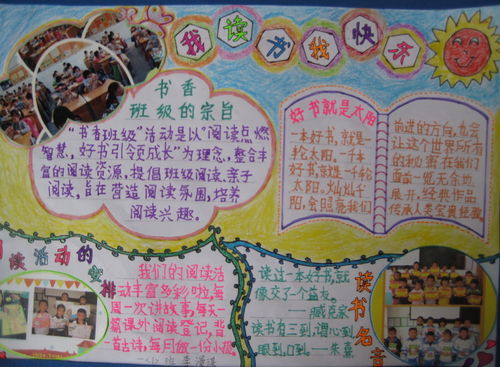 我读书我快乐
书香
班级的宗旨
“书香班级”活动是以“阅读点燃
智慧,好书引领成长”为理念,整合丰
富的阅读资源,提倡班级阅读、亲子
阅读,旨在营造阅读氛围,培养
阅读兴趣。
好书就是太阳
一本好书,就是一
轮太阳。一千本
好书,就是一千轮
太阳。灿灿千
阳,会照亮我们
前进的方向,也会
让这个世界所有
的秘密在我们
面前一览无余地
展开,经典作品
传承人类宝贵经验
阅读活动的
安排
我们的阅读活
动丰富多彩啦,每
周一次讲故事,每天一
篇课外阅读登记,背一
首古诗,每月做一份小报。
读书名言
读过一本好书,就
像交了个益友。
——臧克家
读书有三到,谓心到,
眼到,口到。—朱熹